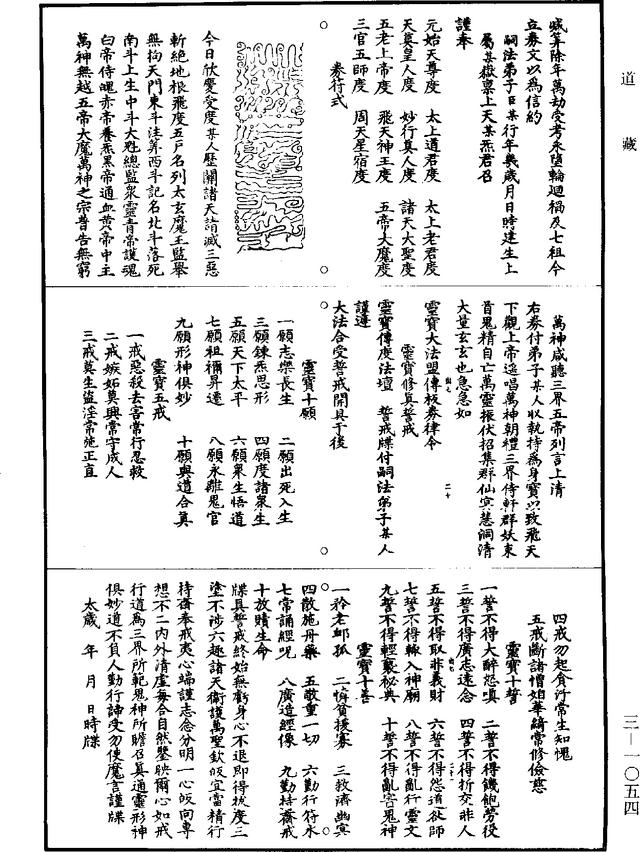 道藏
減算除年萬劫受考永墮輪迴禍及七祖今
立券文以為信約
嗣法弟子臣某行年幾歲月日時建生上
屬某嶽稟上天某炁君召
謹奉
元始天尊度　太上道君度　太上老君度
天真皇人度　妙行真人度　諸天大聖度
五老上帝度　飛天神王度　五帝大魔度
三官五師度　周天星宿度
券符式
今日欣慶受度某人歷關諸天請滅三惡
斬絕地根飛度五戶名列太玄魔王監舉
無拘天門東斗注筭西斗記名北斗落死
南斗上生中斗大魁總監眾靈青帝護魂
白帝侍魄赤帝養炁黑帝通血黃帝中主
萬神無越五帝大魔萬神之宗普告無窮
萬神咸聽三界五帝列言上清
右券付弟子某人收執持為身寶以致飛天
下觀上帝遙唱萬神朝禮三界侍軒群妖束
首鬼精自亡萬靈振伏招集群仙冥慧洞清
大量玄玄也急急如
靈寶大法盟傳板券律令
靈寶修真誓戒
靈寶傳度法壇　誓戒牒付嗣法弟子某人
謹連
大法合受誓戒開具于後
靈寶十願
一願志樂長生　二願出死入生
三願鍊炁思形　四願度諸眾生
五願天下太平　六願眾生悟道
七願祖禰昇遷　八願永離鬼官
九願形神俱妙　十願與道合真
靈寶五戒
一戒惡殺去害常行忍較
二戒嫉妬莫興常守成人
三戒莫生盜淫常施正直
四戒勿起貪汙常生知愧
五戒斷諸憎妲華綺常修儉慈
靈寶十誓
一誓不得大醉怨嗔　二誓不得饑飽勞役
三誓不得廣志遠念　四誓不得折交非人
五誓不得取非義財　六誓不得怨道欲師
七誓不得輙入神廟　八誓不得亂行靈文
九誓不得輕褻秘典　十誓不得亂害鬼神
靈寶十善
一矜老卹孤　二憐貧援寡　三救濟幽冥
四散施丹藥　五敬重一切　六勤行符水
七常誦經呪　八廣造經像　九勤持齋戒
十放贖生命
牒具誓戒終始無虧身心不退即得拔度三
塗不涉六趣諸天衛護萬聖欽皈宜當精行
持齋奉戒夷心端謹志念分明一心皈向專
想不二內外清虛每合自然鑒映爾心如戒
行道為三界所範鬼神所瞻召真通靈形神
俱妙道不負人勤行諦受勿使魔言謹牒
太歲　年　月　日時牒
三－一〇五四